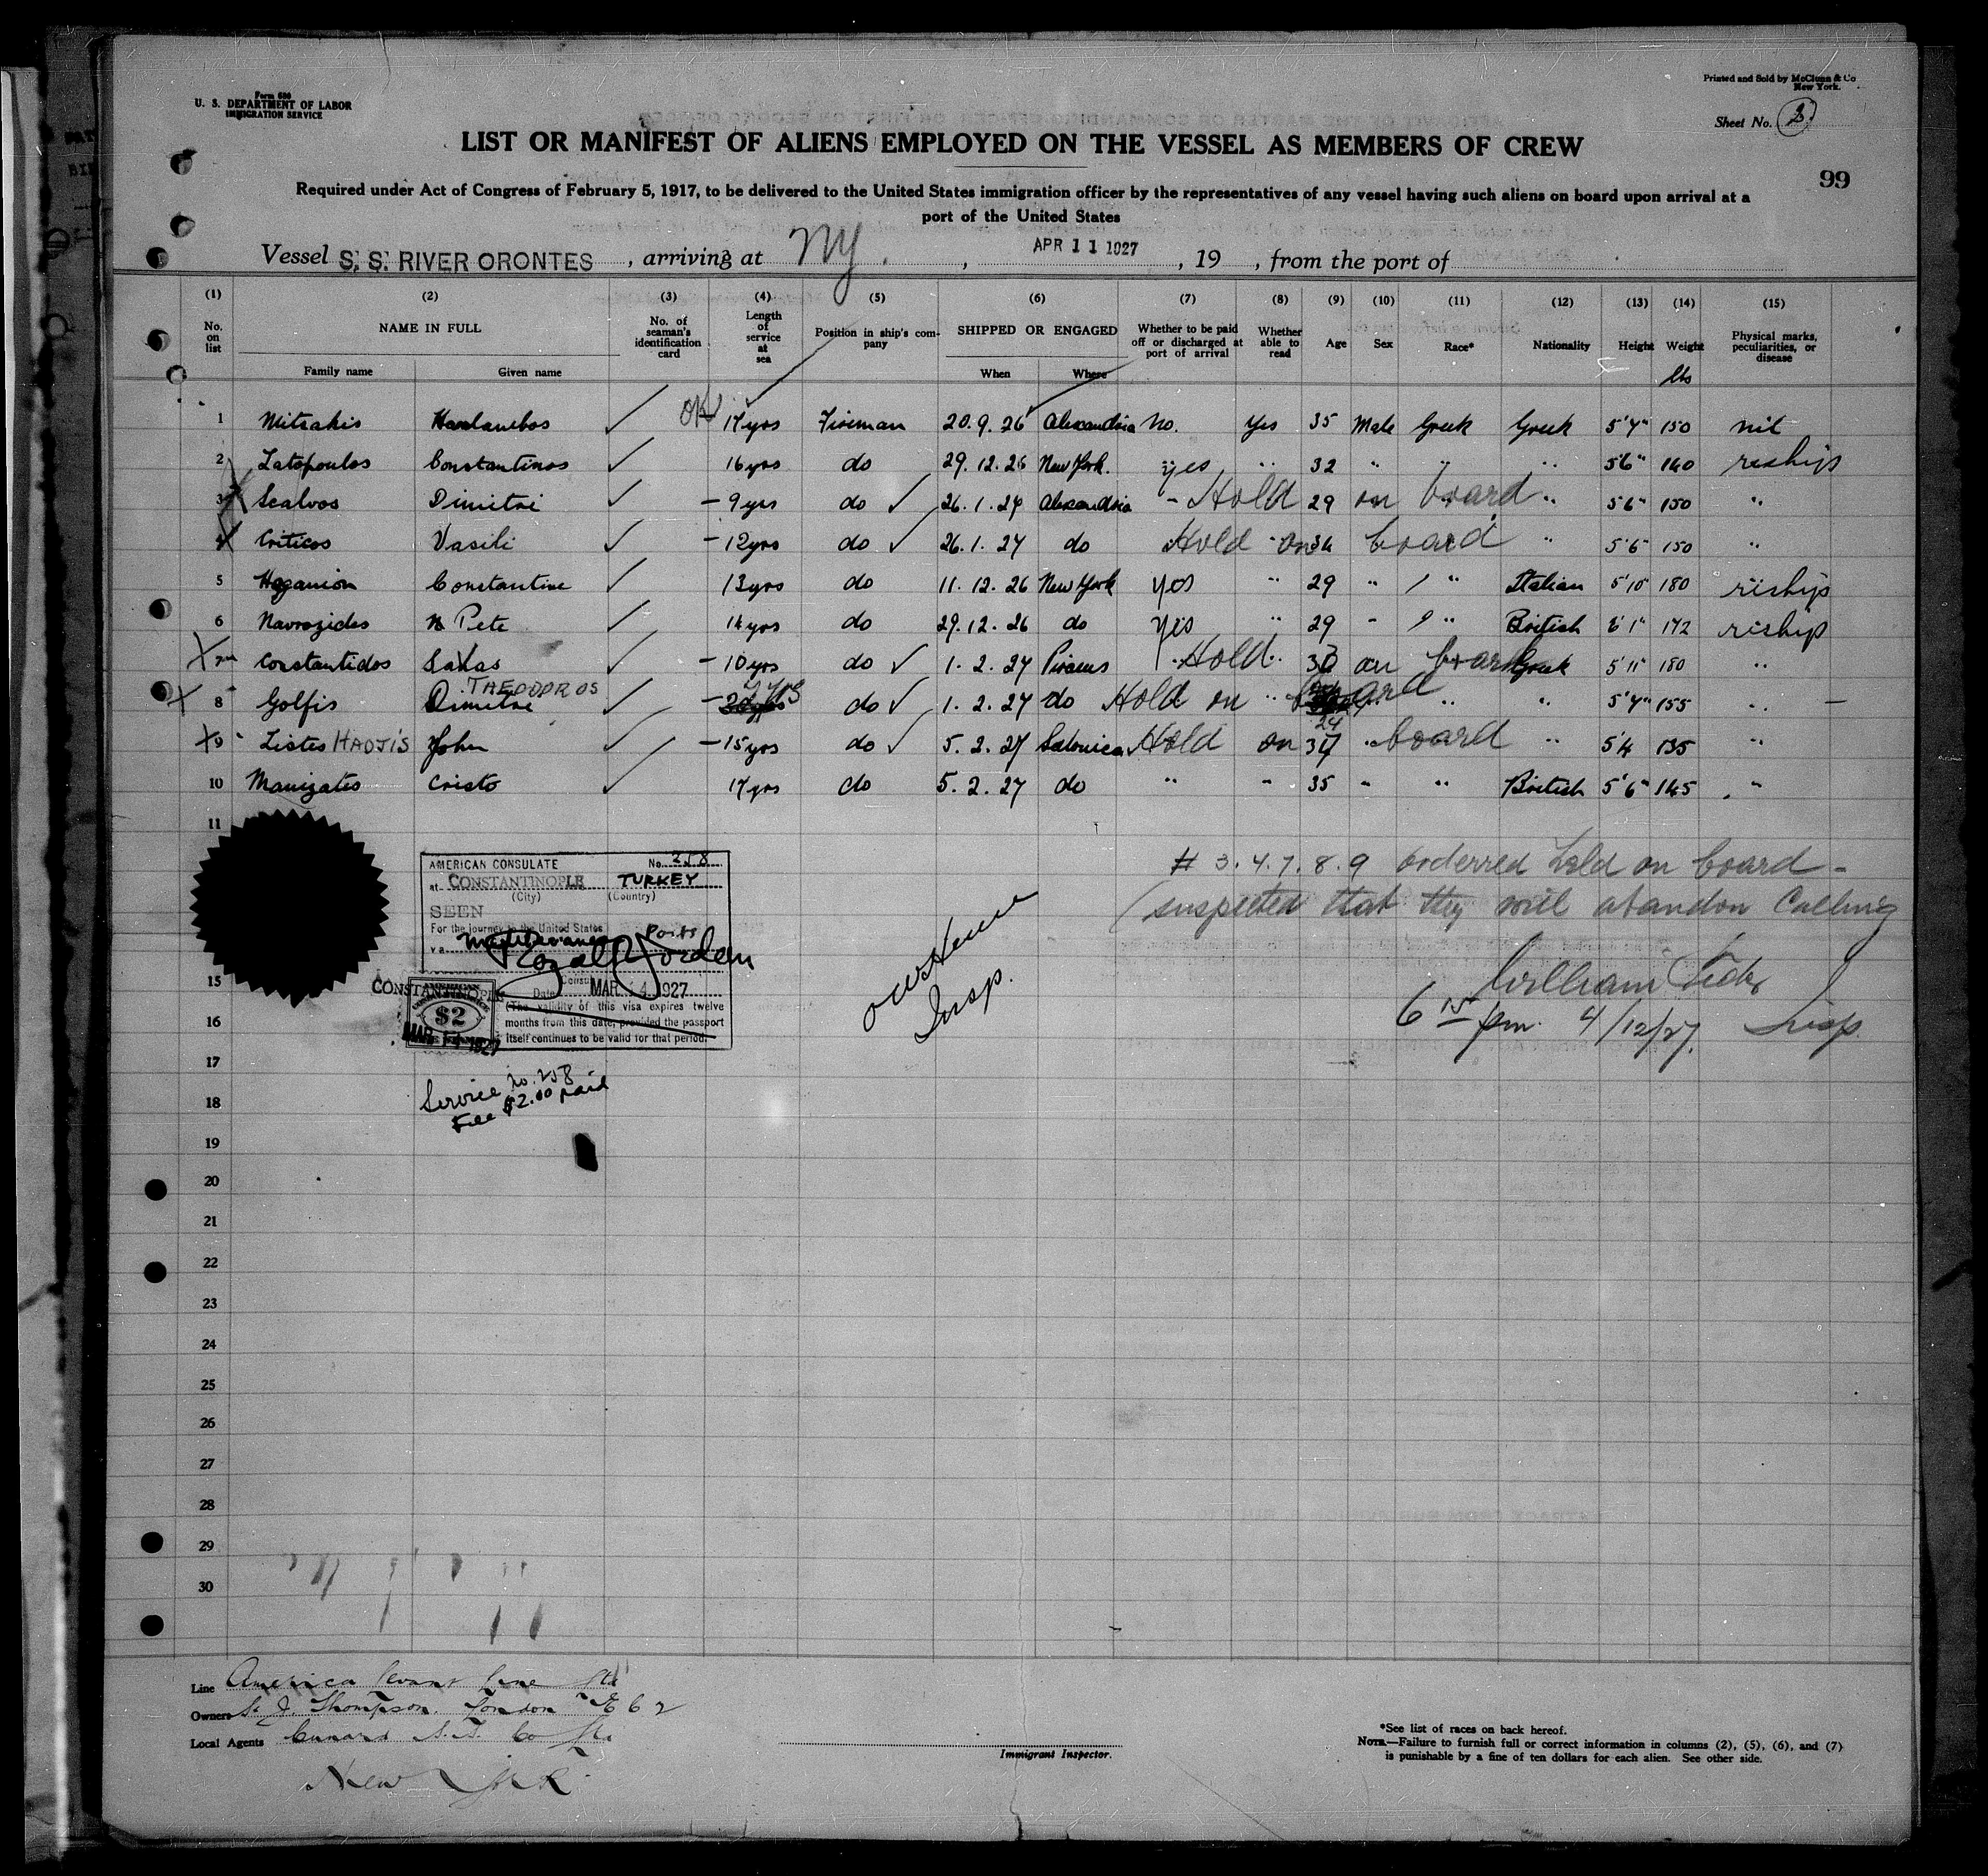 Form 680
U. S. DEPARTMENT OF LABOR
IMMIGRATION SERVICE
Printed and Sold by McClunn & Co
New York.
Sheet No.
LIST OR MANIFEST OF ALIENS EMPLOYED ON THE VESSEL AS MEMBERS OF CREW
99
Required under Act of Congress of February 5, 1917, to be delivered to the United States immigration officer by the representatives of any vessel having such aliens on board upon arrival at a
port of the United States
Vessel S. S. RIVER ORONTES , arriving at NY. , APR 11 1927 , 19 , from the port of
(1) (2) (3) (4) (5) (6) (7) (8) (9) (10) (11) (12) (13) (14) (15)
No. on list NAME IN FULL No. of seaman's identification card Length of service at sea Position in ship's company SHIPPED OR ENGAGED Whether to be paid off or discharged at port of arrival Whether able to read Age Sex Race* Nationality Height Weight Physical marks, peculiarities, or disease
Family name Given name When Where lbs
1 Mitsakis OK 17 yrs Fireman 20.9.26 Alexandria No. Yes 35 Male Greek Greek 5'4" 150 nil
2 Latopoulos Constantinos 16 yrs do 29.12.26 New York. yes " 32 " " " 5'6" 140 reships
3 Scalvos Dimitri - 9 yrs do 26.1.27 Alexandria - Hold 29 on board " 5'6" 150 "
4 Criticos Vasili - 12 yrs do 26.1.27 do Hold on 34 board " 5'6" 150 "
5 Haganion Constantine 13 yrs do 11.12.26 New York yes " 29 " " Italian 5'10" 180 reships
6 Navrozides Pete 14 yrs do 29.12.26 do yes " 29 " " British 6'1" 172 reships
7 Constantidos Savas - 10 yrs do 1.2.27 Piraeus Hold 30 on board Greek 5'11" 180 "
8 Golfis Dimitre THEODOROS do 1.2.27 do Hold on board 24 " " 5'4" 155 "
9 Listes HADJIS John - 15 yrs do 5.2.27 Salonica Hold on 37 board " 5'4 135 "
10 Manizates Cristo 17 yrs do 5.2.27 do " " 35 " " British 5'6" 145 "
11
# 3.4.7.8.9 orderred held on board -
(suspected that they will abandon calling
William
6 15 pm. 4/12/27. Insp.
Insp.
AMERICAN CONSULATE No. 258
at CONSTANTINOPLE TURKEY
(City) (Country)
SEEN
For the journey to the United States
via Mediterranean Ports
Consul
Date MAR 14 1927
(The validity of this visa expires twelve
months from this date, provided the passport
itself continues to be valid for that period.
CONSTANTINOPLE
$2
MAR 14 1927
Service no. 258
Fee $2.00 paid
15
16
17
18
19
20
21
22
23
24
25
26
27
28
29
30
Line America Levant Line Ltd
Owners S. J. Thompson. London
Local Agents Cunard S.S. Co Ltd
New York
Immigrant Inspector.
*See list of races on back hereof.
NOTE.—Failure to furnish full or correct information in columns (2), (5), (6), and (7)
is punishable by a fine of ten dollars for each alien. See other side.